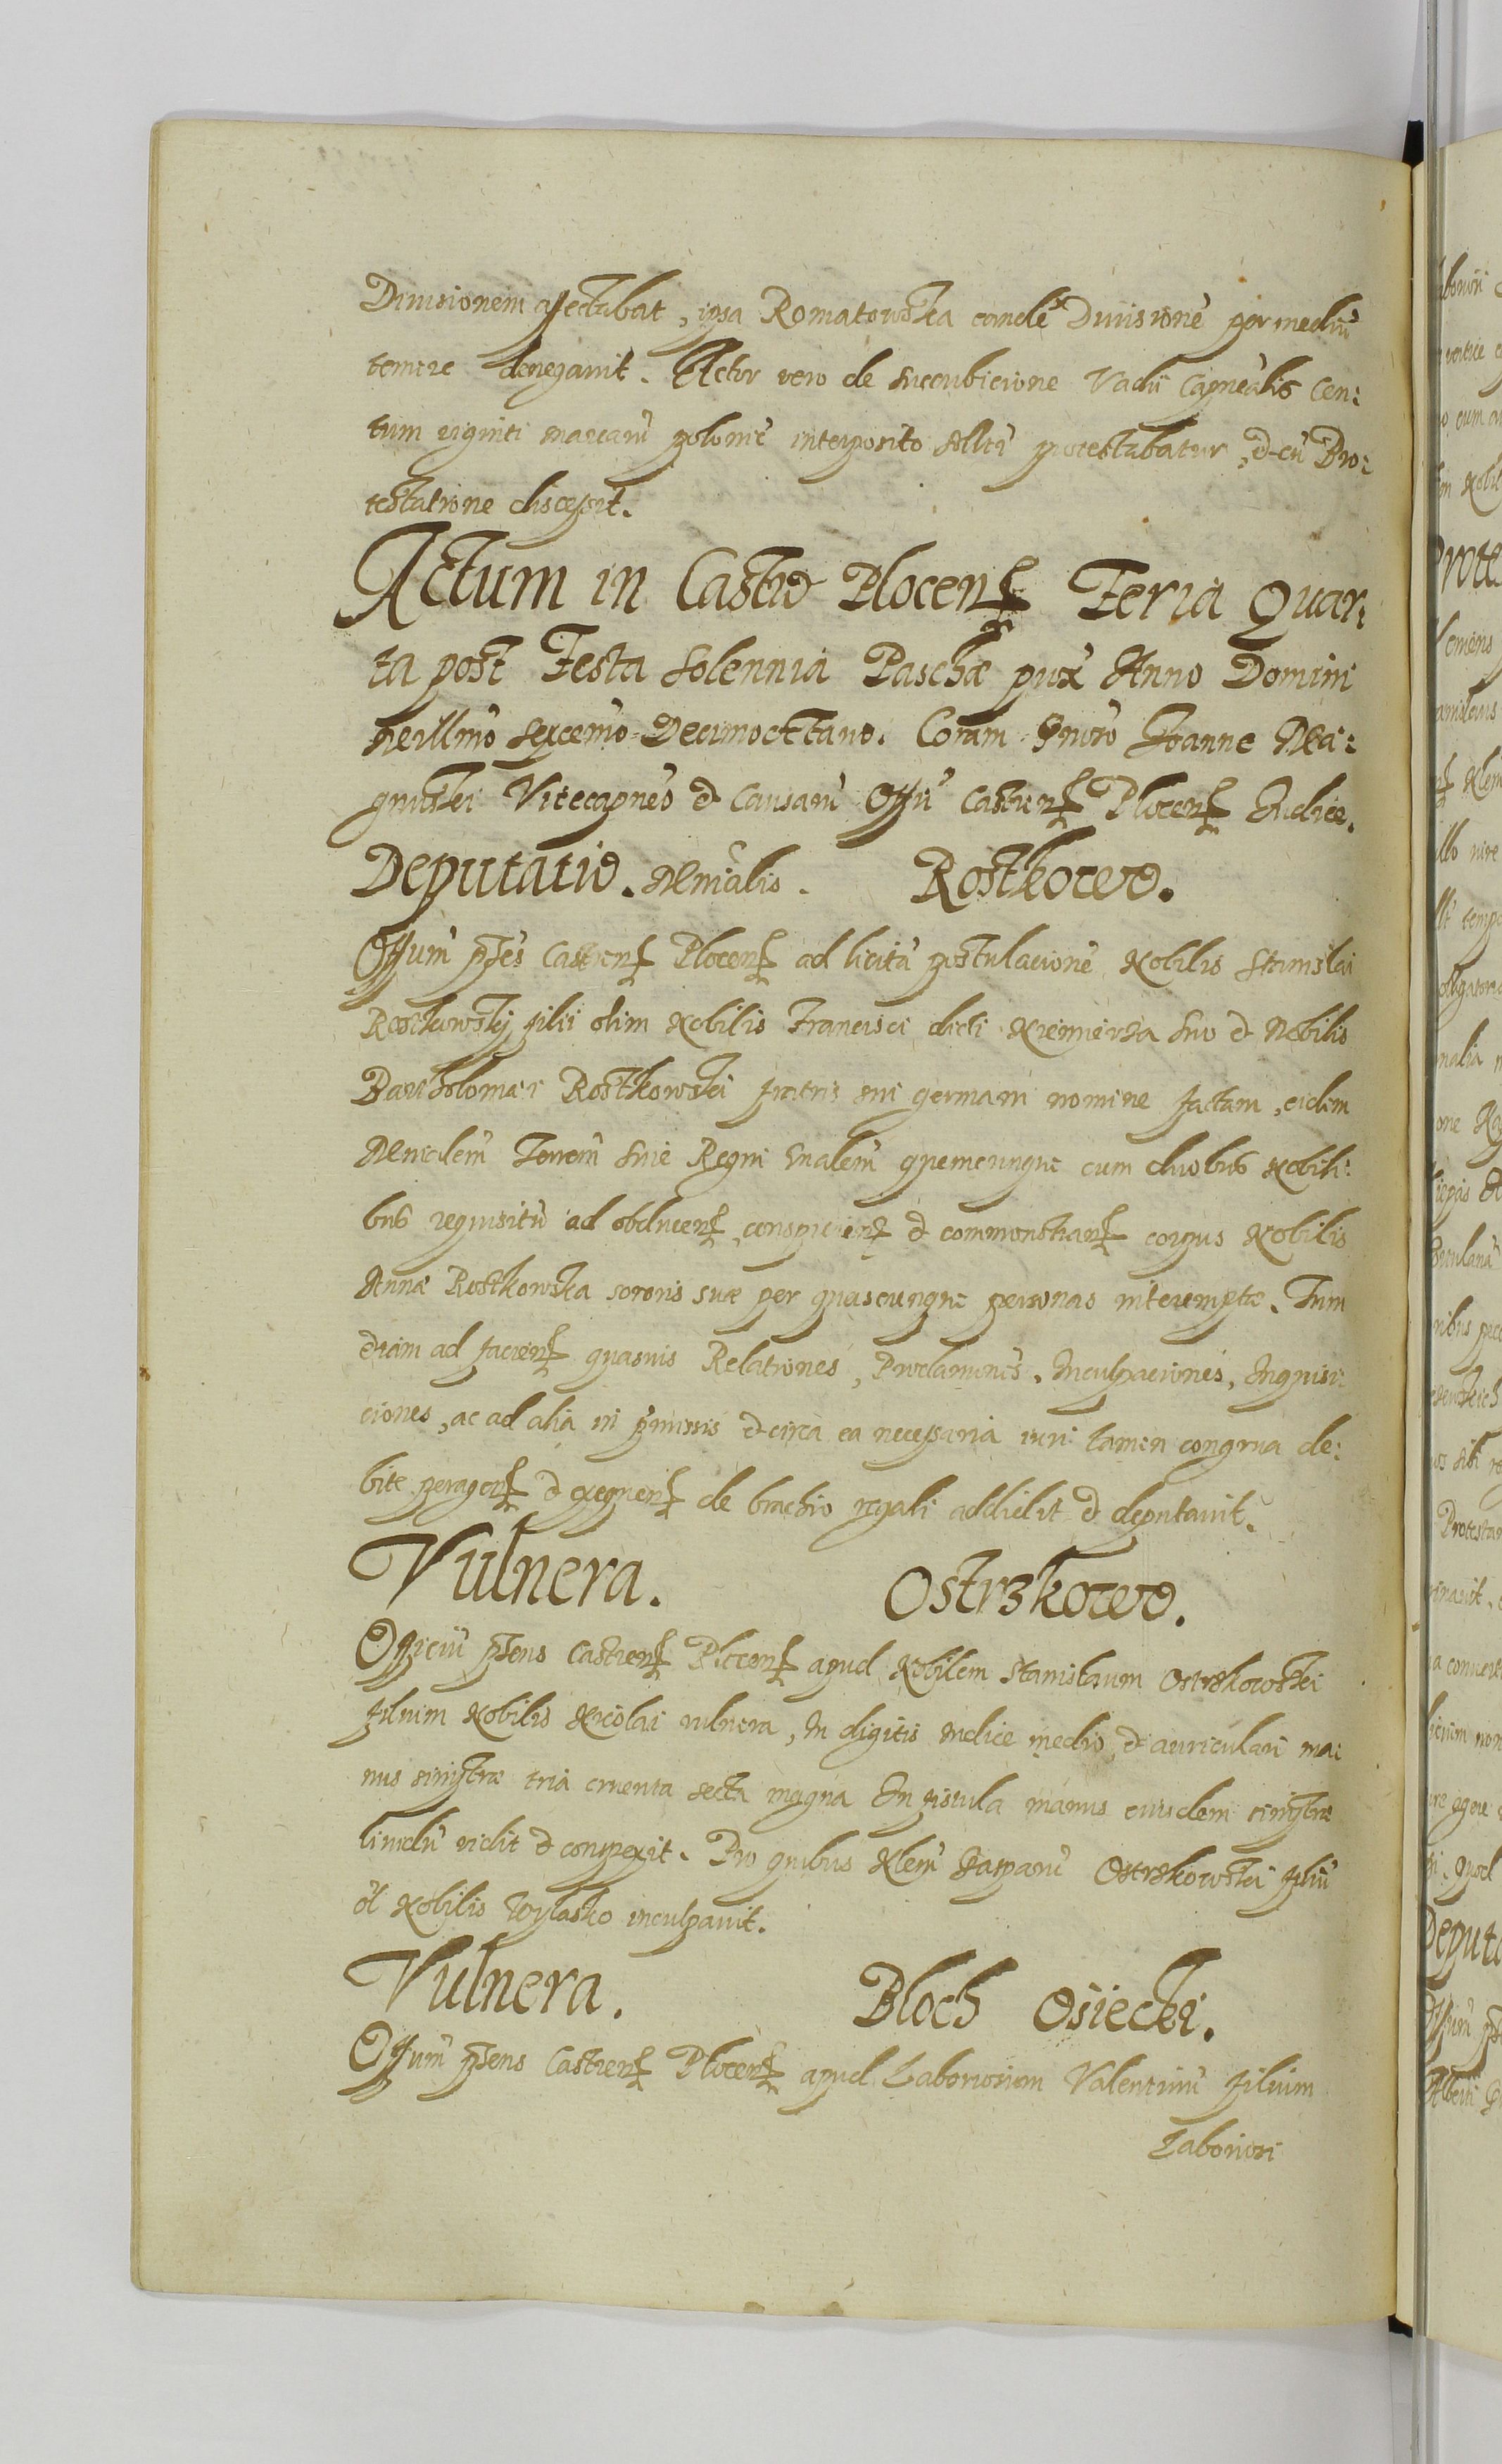 Diuisionem affectabat, ipsa Romatowska eandē Diuisionē per mediū
temere denegauit. Actor vero de succubicione Vadii Capnealis Cen:
tum viginti marcarū polonic̄ interposito sollr̄ protestabatur, & cū Pro:
testatione discessit.
Actum in Castro Plocen̄ Feria Quar:
ta post Festa Solennia Paschæ prox̄ Anno Domini
Millmo sexcemo Decimooctauo. Coram Gnoso Joanne Ma:
gnuski Vicecapneo & Causarū Offii Castren̄ Plocen̄ Iudice.
Deputatio. Mnialis. Rostkowo.
Offium pn̄s Castren̄ Plocen̄ ad licitā postulacionē Nobilis Stanislai
Rostkowskj filii olim Nobilis Francisci dicti Niemierza suo & Nobilis
Bartholomæi Rostkowski fratris sui germani nomine factam, eidem
Mnialem Terrarm siue Regni gnalem quemcunque cum duobus Nobili:
bus requisitū ad obducen̄, conspicien̄ & commonstran̄ corpus Nobilis
Annæ Rostkowska sororis suæ per quascunque personas interemptæ. Tum
etiam ad facien̄ quasuis Relationes, Proclamones, Inculpaciones, Inquisi:
ciones, ac ad alia in p̄missis & circa ea necessaria iuri tamen congrua de:
bite peragen̄ & exequen̄ de brachio regali addidit & deputauit.
Vulnera. Ostrzkowo.
Officiū pn̄s Castren̄ Plocen̄ apud Nobilem Stanislaum Ostrzkowski
filium Nobilis Nicolai vulnera, In digitis Indice medio, & auriculari ma:
nus sinistræ tria cruenta secta magna In fistula manus eiusdem sinistræ
liuidū vidit & conspexit. Pro quibus Nlem Gasparū Ostrzkowski filiū
ol̄ Nobilis Woytasko inculpauit.
Vulnera. Bloch Osiecki.
Offium pn̄s Castren̄ Plocen̄ apud Laboriosum Valentinū filium
Laboriosi